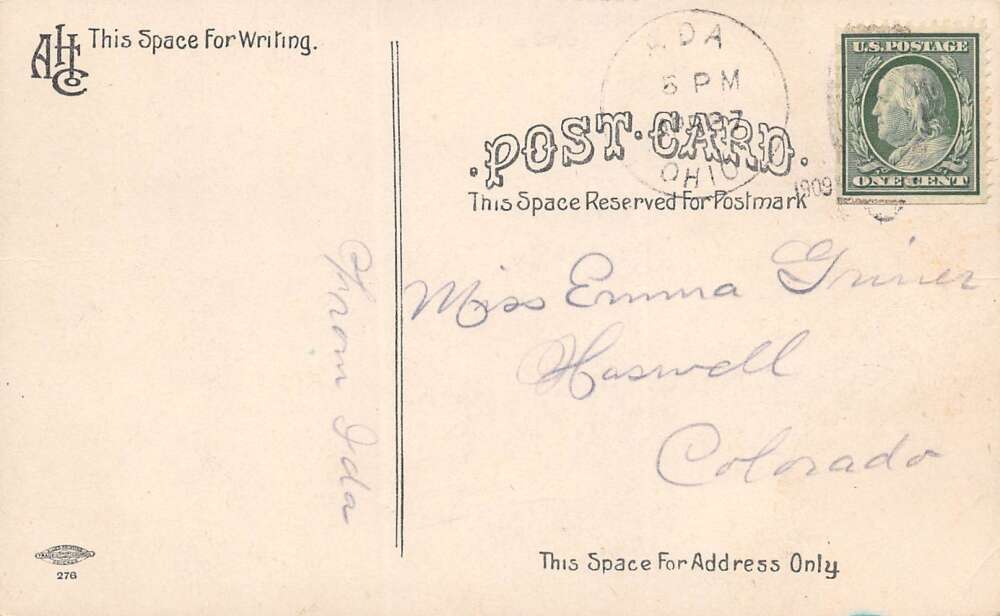 AHCo This Space For Writing.
ADA
6 PM
OHIO
1909
U.S. POSTAGE
ONE CENT
POST CARD.
This Space Reserved For Postmark
Miss Emma Griner
Haswell
Colorado
From Ida
276
This Space For Address Only